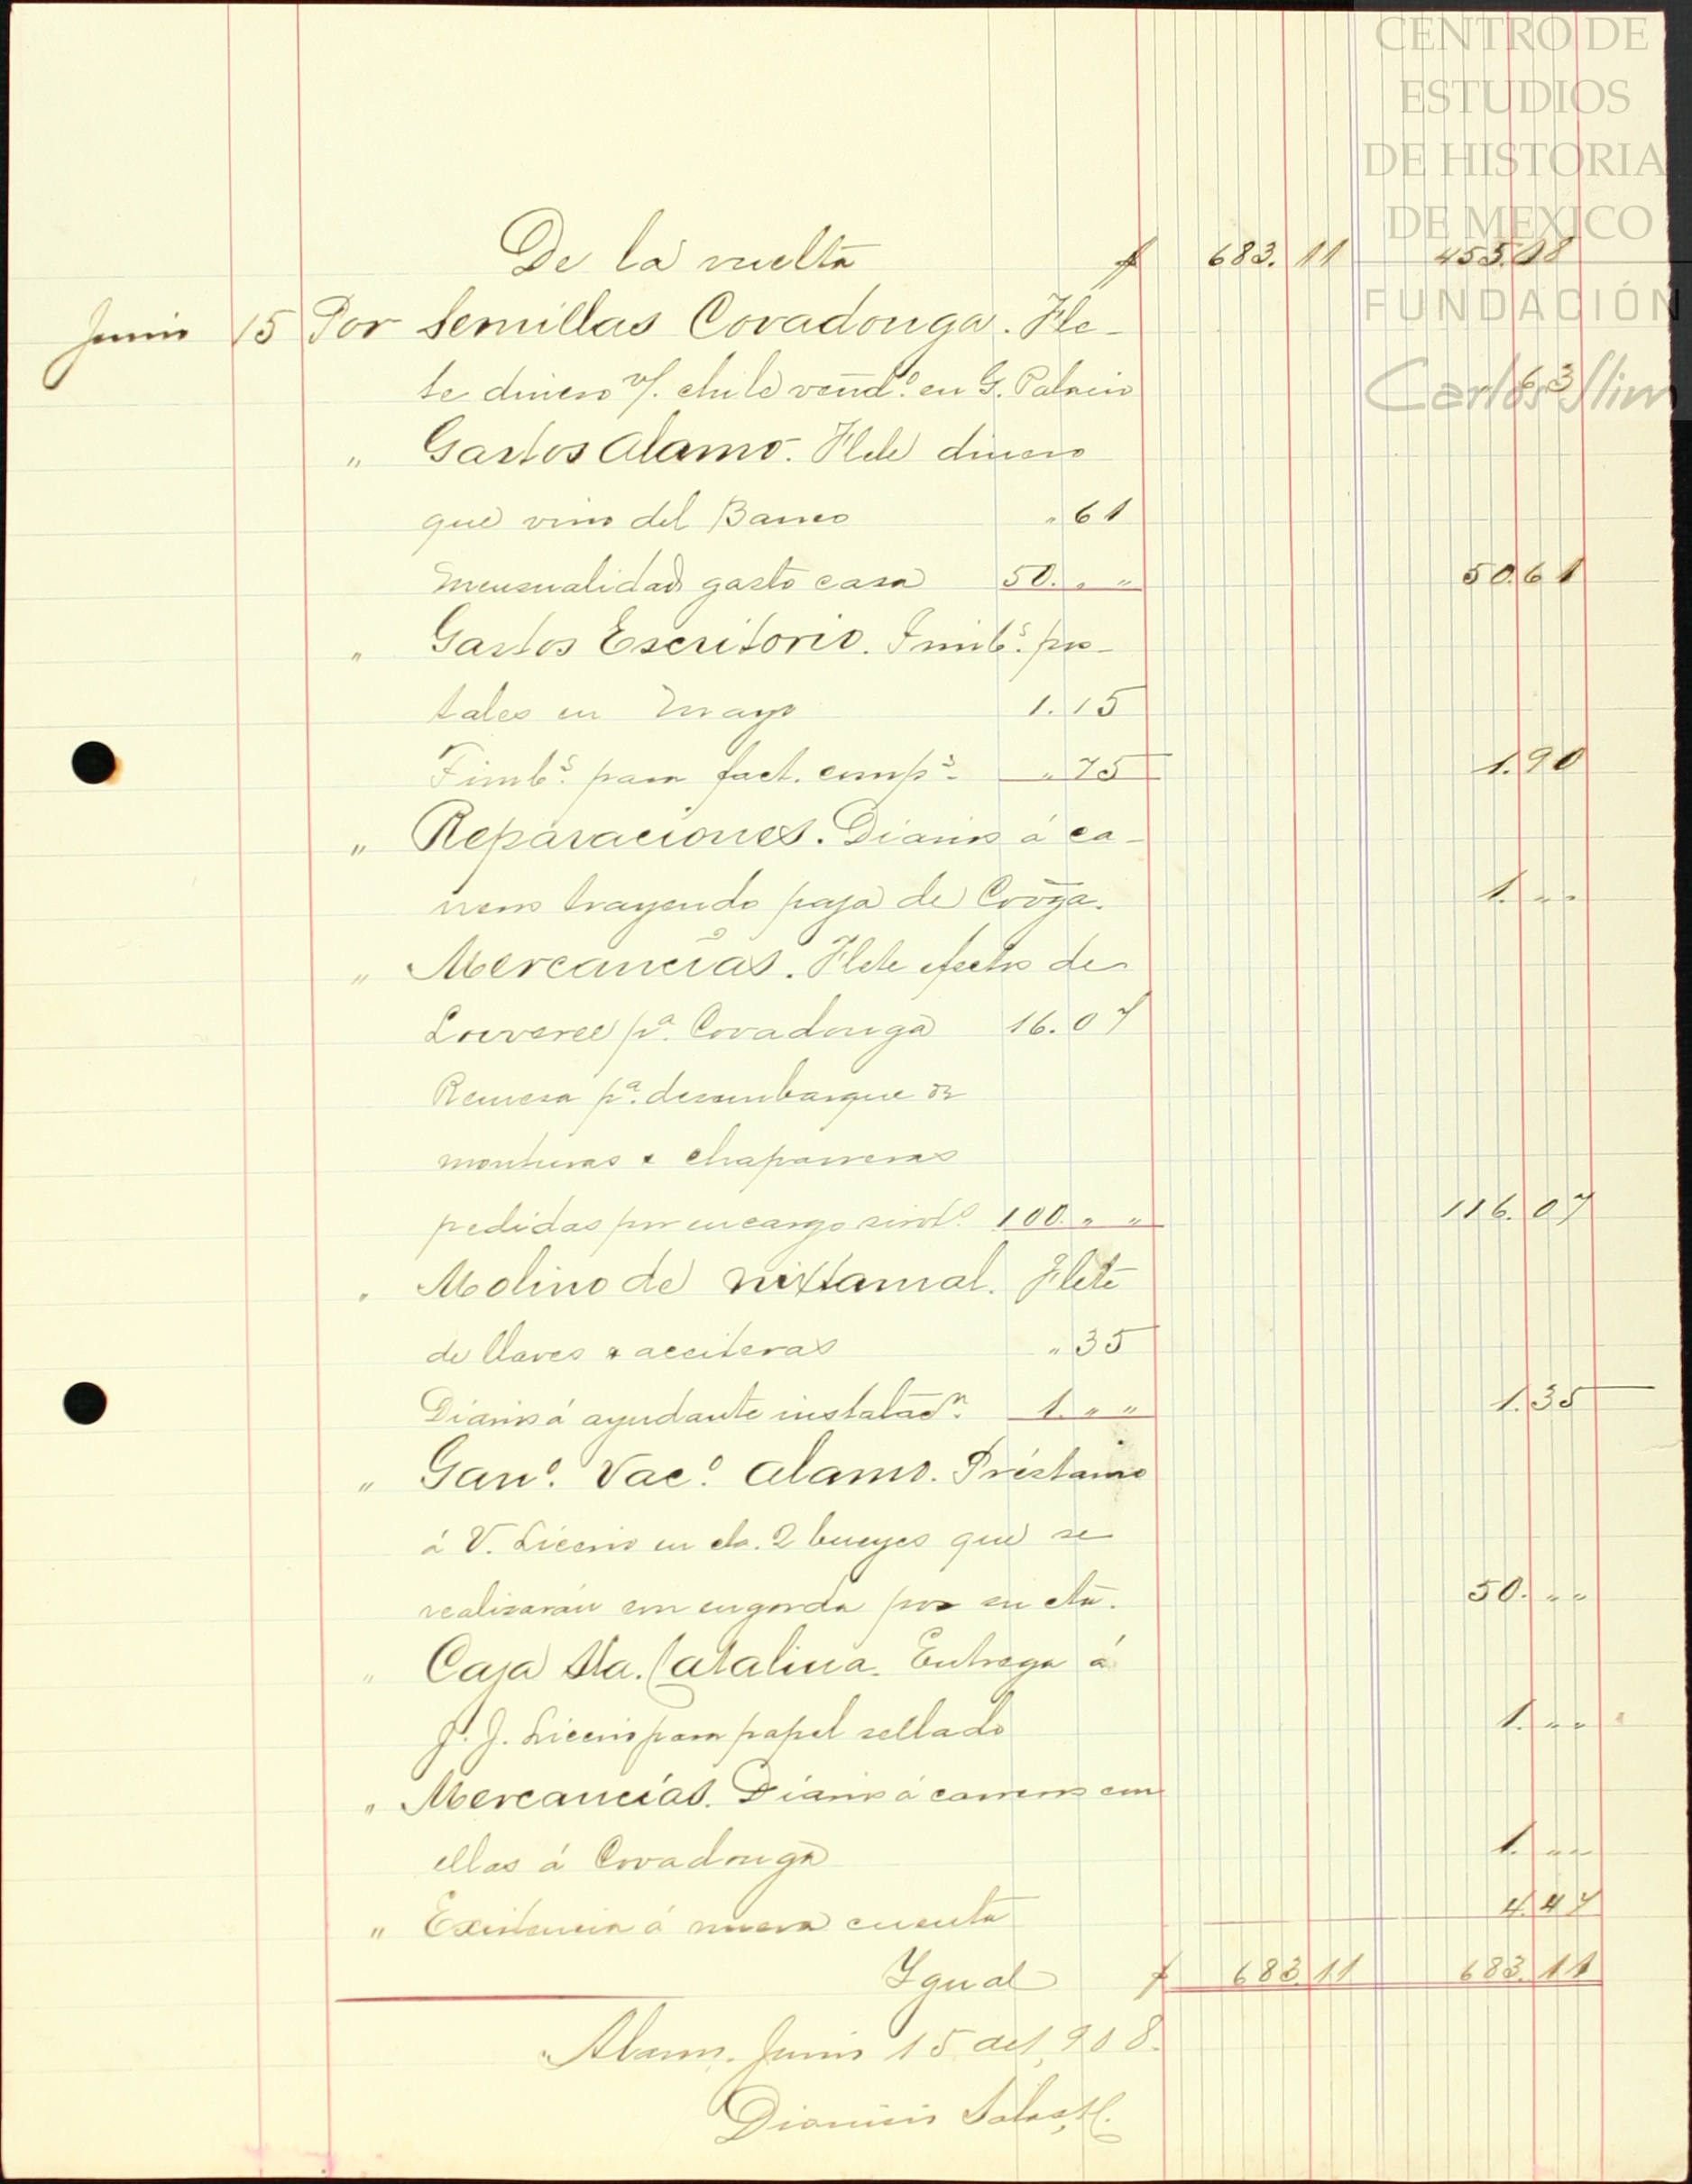 CENTRO DE
ESTUDIOS
DE HISTORIA
DE MEXICO
FUNDACIÓN
Carlos Slim
De la vuelta $ 683.11 455.08
Junio 15 Por Semillas Covadonga. Fle-
te dinero v/. chile vend.º en G. Palacio 63
" Gastos Alamo. Flete dinero
que vino del Banco " 61
Mensualidad gasto casa 50. " " 50.61
" Gastos Escritorio. Timb.s pos-
tales en Mayo 1.15
Timb.s para fact. comp.s " 75 1.90
" Reparaciones. Diarios á ca-
rreros trayendo paja de Covga. 1. " "
" Mercancías. Flete efectos de
p.a Covadonga 16.07
Remesa p.a desembarque de
monturas & chaparreras
pedidas por encargo 100. " " 116.07
" Molino de nixtamal. Flete
de llaves & aceiteras " 35
Diarios á ayudante instalac.n 1. " " 1.35
" Gan.º Vac.º Alamo. Préstamo
á V. Licerio en cta. 2 bueyes que se
realizarán en engorda por su cta. 50. " "
" Caja Sta. Catalina. Entrega á
J. J. Licerio para papel sellado 1. " "
" Mercancías. Diarios á carreros con
ellas á Covadonga 1. " "
" Existencia á nueva cuenta 4.47
Igual $ 683.11 683.11
Alamo. Junio 15 de 1,908.
Dionisio Salas H.